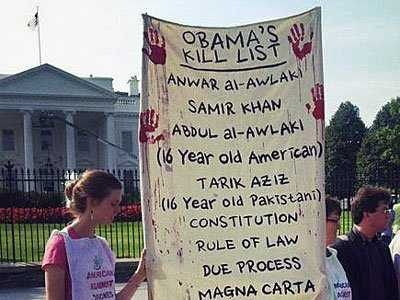 OBAMA'S
KILL LIST
ANWAR al-AWLAKI
SAMIR KHAN
ABDUL al-AWLAKI
(16 Year old American)
TARIK AZIZ
(16 Year old Pakistani)
CONSTITUTION
RULE OF LAW
DUE PROCESS
MAGNA CARTA
AMERICANS
AGAINST
DRONES